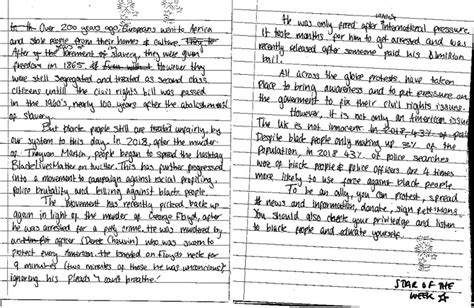 Over 200 years ago Europeans went to Africa
and stole people from their homes & culture.
After the torment of slavery, they were given
freedom in 1865. However they
were still segregated and treated as second class
citizens until the civil rights bill was passed
in the 1960's, nearly 100 years after the abolishment
of slavery.
But black people still are treated unfairly, by
our system to this day. In 2018, after the murder
of Trayvon Martin, people began to spread the hashtag
BlackLivesMatter on twitter. This has further progressed
into a movement to campaign against racial profiling
police brutality and killing against black people.
The movement has recently picked back up
again in light of the murder of George Floyd, after
he was arrested for a petty crime. He was murdered by
officer (Derek Chauvin) who was sworn to
protect every American. He kneeled on Floyds neck for
9 minutes (two minutes of those he was unconcious)
ignoring his pleads "I cant breathe"
He was only fired after international pressure.
It took months for him to get arrested and was
recently released after someone paid his $1million
bail.
All across the globe protests have taken
place to bring awareness and to put pressure on
the goverment to fix their civil rights issues.
However, it is not only an American issue
The UK is not innocent.
Despite black people only making up 3% of the
population, in 2018 43% of police searches
were of black people & police officers are 4 times
more likely to use force against black people.
To be an ally, you can protest, spread
news and information, donate, sign petitions,
You should also check your priviledge and listen
to black people and educate yourself.
STAR OF THE
WEEK